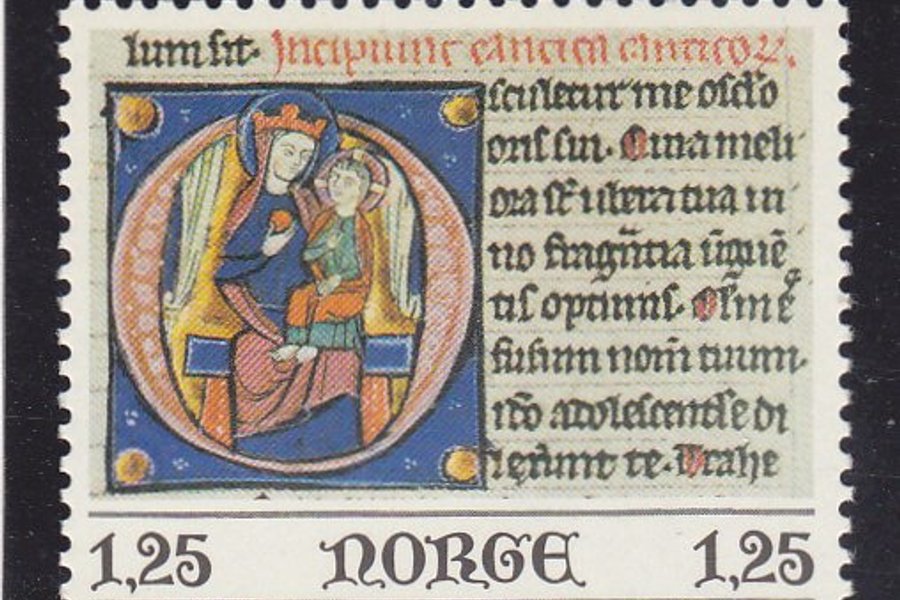 lum sit. Incipiunt cantica canticoꝝ.
Osculetur me osc̄lo
oris sui. Quia meli
ora st̄ ubera tua ui
no fragr̄ntia ūguē
tis optimis. Ol̄m eͣ
fusum nom̄ tuum
iō adolescentl̄e di
lexerunt te. Trahe
1,25 NORGE 1,25